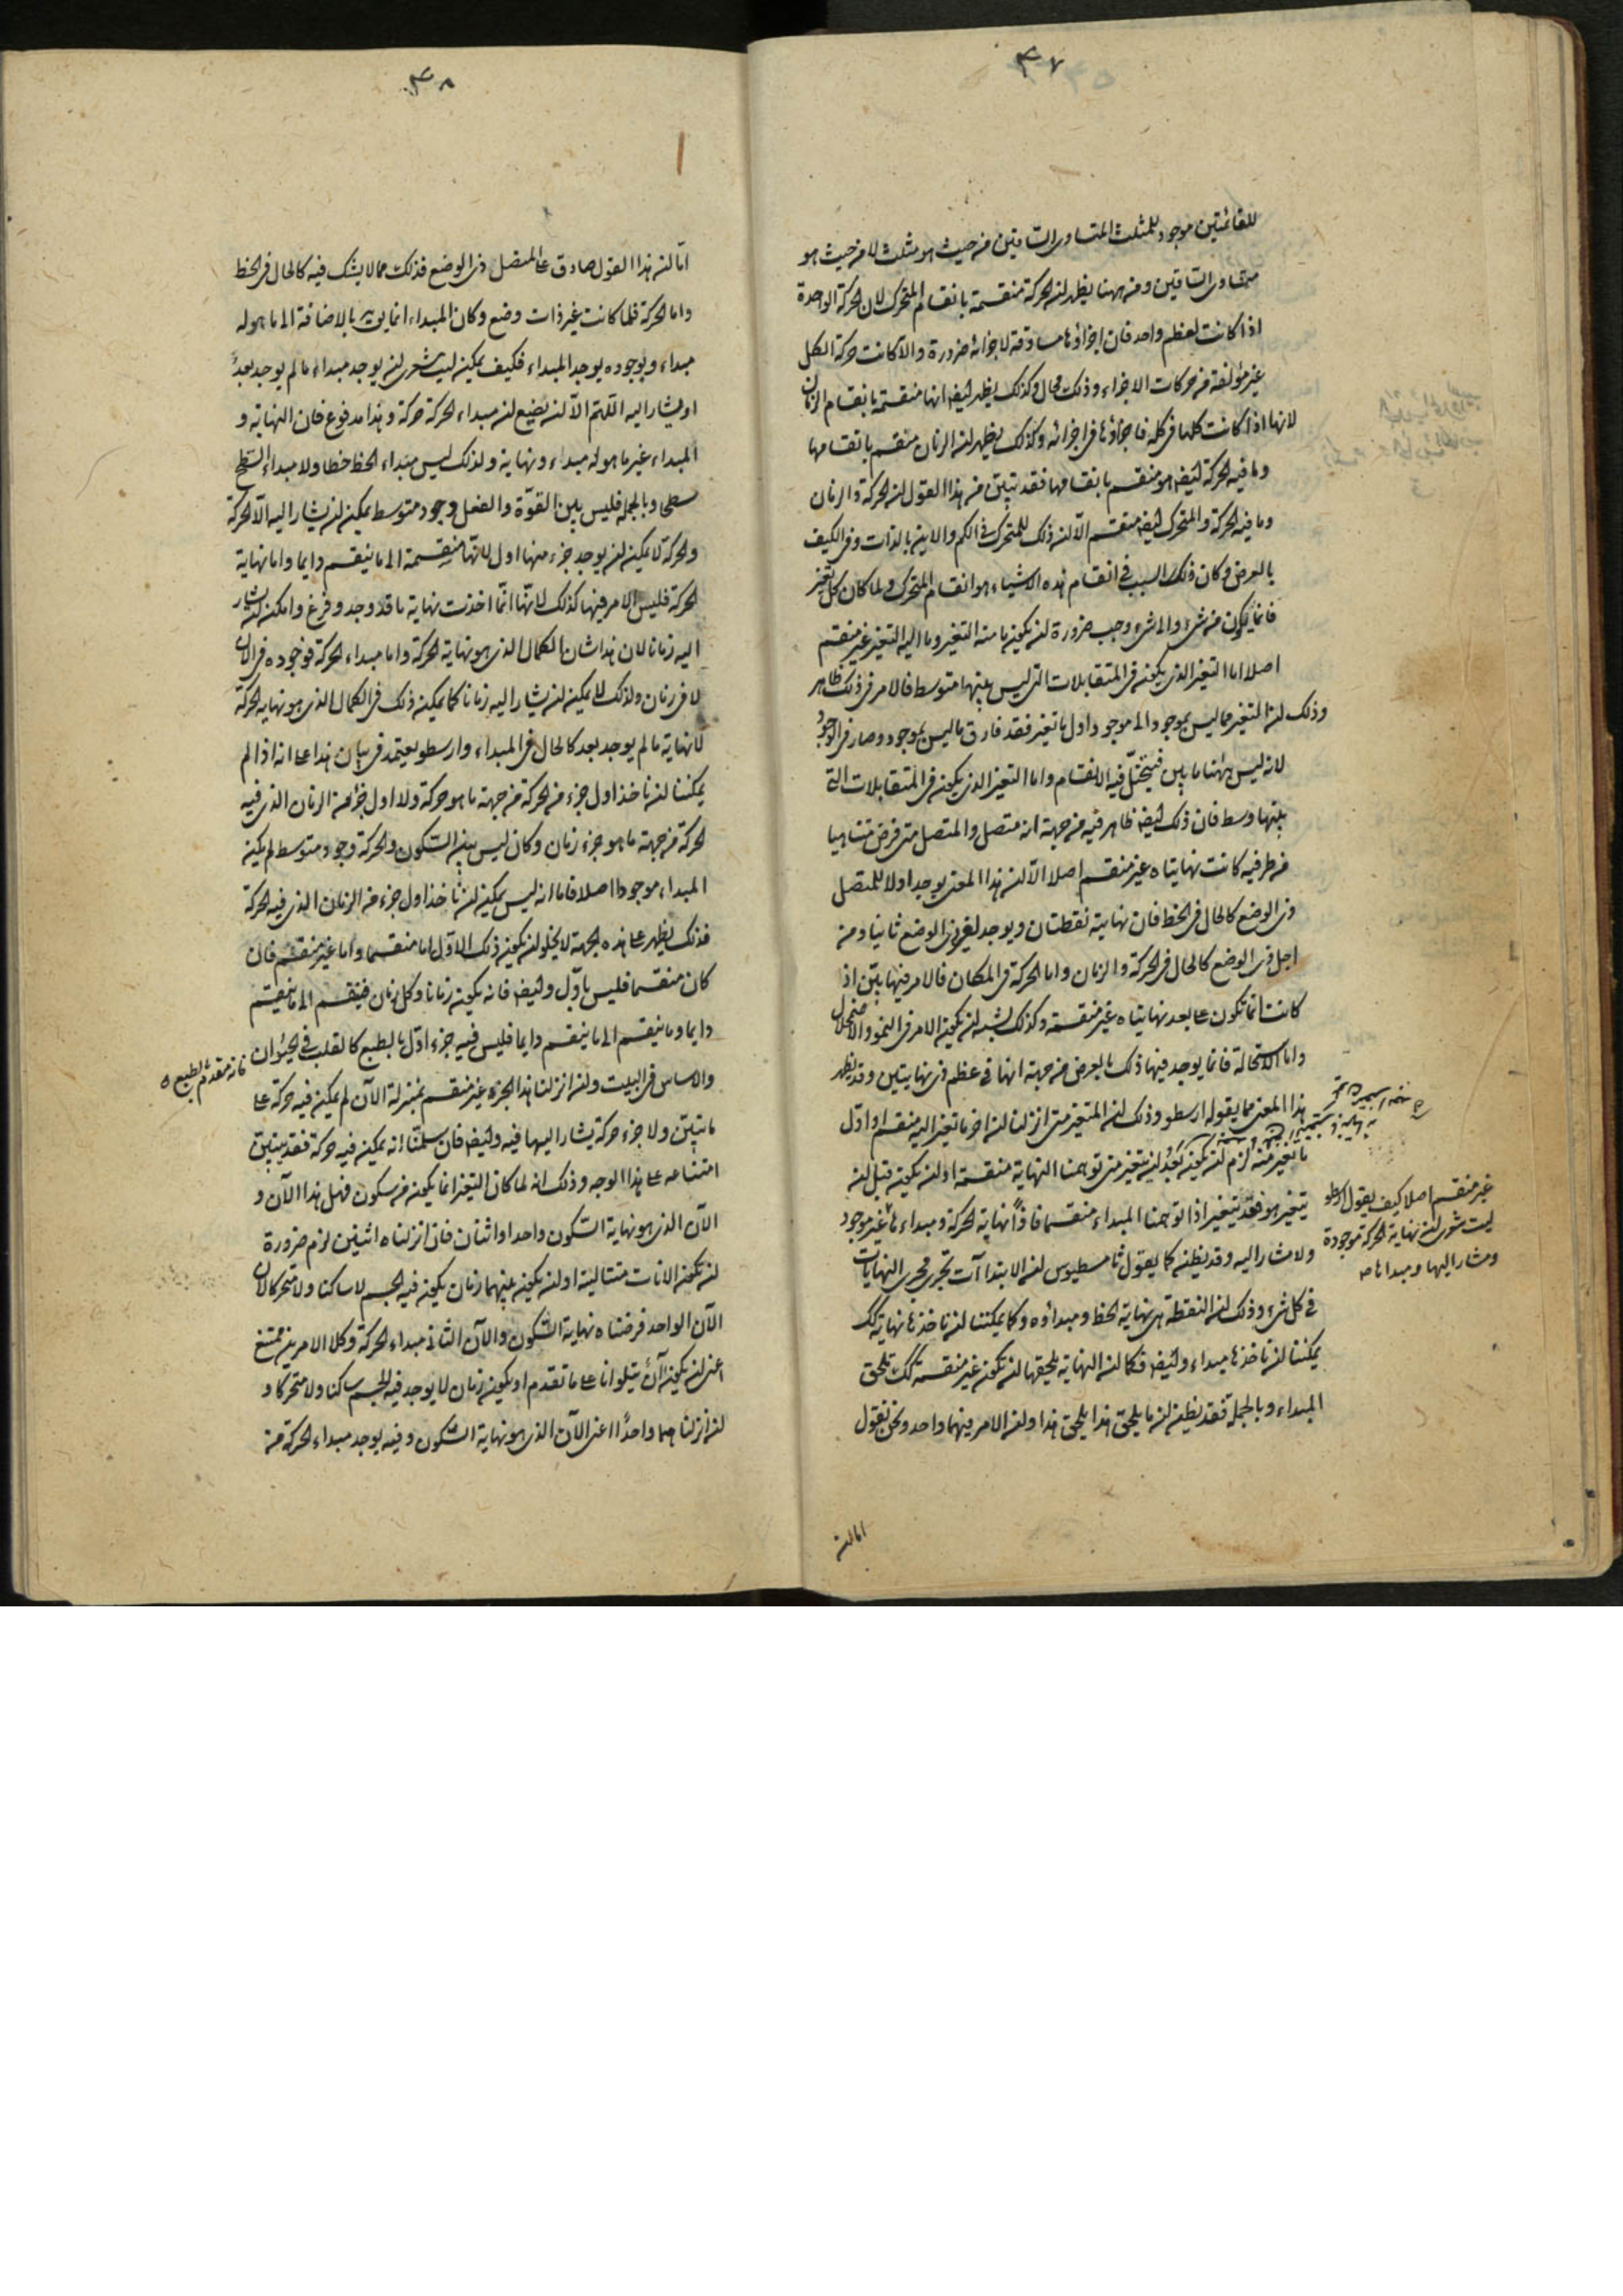 ٣٧
للقائمتين موجود للمثلث المتساوى الساقين من حيث هو مثلث لا من حيث هو
متساوى الساقين ومن ههنا يظهر ان الحركة منقسمة بانقسام المتحرك لان الحركة الواحدة
اذا كانت لعظم واحد فان اجزاؤها مساوقة لاجزائه ضرورة والا كانت حركة الكل
غير مؤلفة من حركات الاجزاء وذلك محال وكذلك يظهر ايضا انها منقسمة بانقسام الزمان
لانها اذا كانت كلها فى كله فاجزاؤها فى اجزائه وكذلك يظهر ان الزمان منقسم بانقسامها
وما فيه الحركة ايضا هو منقسم بانقسامها فقد تبين من هذا القول ان الحركة والزمان
وما فيه الحركة والمتحرك ايضا منقسم الا ان ذلك للمتحرك فى الكم والاين بالذات وفى الكيف
بالعرض وكان ذلك السبب فى انقسام هذه الاشياء هو انقسام المتحرك ولما كان كل تغير
فانما يكون من شىء والى شىء وجب ضرورة ان يكون ما منه التغير وما اليه التغير غير منقسم
اصلا اما التغير الذى يكون فى المتقابلات التى ليس بينها متوسط فالامر فى ذلك ظاهر
وذلك ان التغير مما ليس بموجود الى موجود واول ما تغير فقد فارق ما ليس بموجود وصار فى الوجود
لانه ليس هناك ما بين فيتخيل فيه الانقسام واما التغير الذى يكون فى المتقابلات التى
بينها وسط فان ذلك ايضا ظاهر فيه من جهة انه متصل والمتصل متى فرض متناهيا
من طرفيه كانت نهايتاه غير منقسم اصلا الا ان هذا المعنى يوجد اولا للمتصل
ذى الوضع كالحال فى الخط فان نهايتيه نقطتان ويوجد لغير ذى الوضع ثانيا ومن
اجل ذى الوضع كالحال فى الحركة والزمان واما الحركة فى المكان فالامر فيها بين اذ
كانت انما تكون على بعد نهايتاه غير منقسمة وكذلك يشبه ان يكون الامر فى النمو والاضمحلال
واما الاستحالة فانما يوجد فيها ذلك بالعرض من جهة انها فى عظم ذى نهايتين وقد يظهر
هذا المعنى مما يقوله ارسطو وذلك ان المتغير متى انزلنا ان اخر ما تغير اليه منقسم او اول
ما تغير منه لزم ان يكون بعد ان يتغير متى توهمنا النهاية منقسمة او ان يكون قبل ان
يتغير هو فقد تغير اذا توهمنا المبداء منقسما فاذا نهاية الحركة ومبداءها غير موجود
ولا مشار اليه وقد يظن كما يقول ثامسطيوس ان الابتداآت تجرى مجرى النهايات
فى كل شىء وذلك ان النقطة هى نهاية الخط ومبداؤه وكما يمكننا ان ناخذها نهاية كك
يمكننا ان ناخذها مبداء وايضا فكما ان النهاية يلحقها ان تكون غير منقسمة كك تلحق
المبداء وبالجملة فقد يظن ان ما يلحق هذا يلحق هذا وان الامر فيهما واحد ونحن نقول
غير منقسم اصلا كيف يقول ارسطو
ليت شعرى ان نهاية الحركة موجودة
ومشار اليها ومبداها ص
اما ان
٣٨
اما ان هذا القول صادق على المتصل ذى الوضع فذلك مما لا يشك فيه كالحال فى الخط
واما الحركة فلما كانت غير ذات وضع وكان المبداء انما يوجد بالاضافة الى ما هو له
مبداء وبوجوده يوجد المبداء فكيف يمكن ليت شعرى ان يوجد مبداء ما لم يوجد بعد
او يشار اليه اللهم الا ان يضع ان مبداء الحركة حركة وهذا مدفوع فان النهاية و
المبداء غير ما هو له مبداء ونهاية ولذلك ليس مبداء الخط خطا ولا مبداء السطح
سطحا وبالجملة فليس بين القوة والفعل وجود متوسط يمكن ان يشار اليه الا الحركة
والحركة لا يمكن ان يوجد جزء منها اول لانها منقسمة الى ما ينقسم دايما واما نهاية
الحركة فليس الامر فيها كذلك لانها انما اخذت نهاية ما قد وجد وفرغ وامكن ان يشار
اليه زمانا لان هذا شان الكمال الذى هو نهاية الحركة واما مبداء الحركة فوجوده فى الآن
لا فى زمان ولذلك لا يمكن ان يشار اليه زمانا كما يمكن ذلك فى الكمال الذى هو نهاية الحركة
لا نهاية ما لم يوجد بعد كالحال فى المبداء وارسطو يعتمد فى بيان هذا على انه اذا لم
يمكننا ان ناخذ اول جزء من الحركة من جهة ما هو حركة ولا اول جزء من الزمان الذى فيه
الحركة من جهة ما هو جزء زمان وكان ليس بين السكون والحركة وجود متوسط لم يكن
المبداء موجودا اصلا فاما انه ليس يمكن ان ناخذ اول جزء من الزمان الذى فيه الحركة
فذلك يظهر على هذه الجهة لا يخلو ان يكون ذلك الاول اما منقسما واما غير منقسم فان
كان منقسما فليس باول وايضا فانه يكون زمانا وكل زمان فينقسم الى ما ينقسم
دايما وما ينقسم الى ما ينقسم دايما فليس فيه جزء اول بالطبع كالقلب فى الحيوان
فانه مقدم بالطبع ه
والاساس فى البيت وان انزلنا هذا الجزء غير منقسم بمنزلة الآن لم يمكن فيه حركة على
ما تبين ولا جزء حركة يشار اليها فيه وايضا فان سلمنا انه يمكن فيه حركة فقد يتبين
امتناعه على هذا الوجه وذلك انه لما كان التغير انما يكون من سكون فهل هذا الآن و
الآن الذى هو نهاية السكون واحد او اثنان فان انزلناه اثنين لزم ضرورة
ان تكون الانات متتالية او ان يكون بينهما زمان يكون فيه الجسم لا ساكنا ولا متحركا لان
الآن الواحد فرضناه نهاية السكون والآن الثانى مبداء الحركة وكلا الامرين ممتنع
اعنى ان يكون آن يتلو انا على ما تقدم او يكون زمان لا يوجد فيه الجسم ساكنا ولا متحركا و
ان انزلناهما واحدا اعنى الآن الذى هو نهاية السكون وفيه يوجد مبداء الحركة من